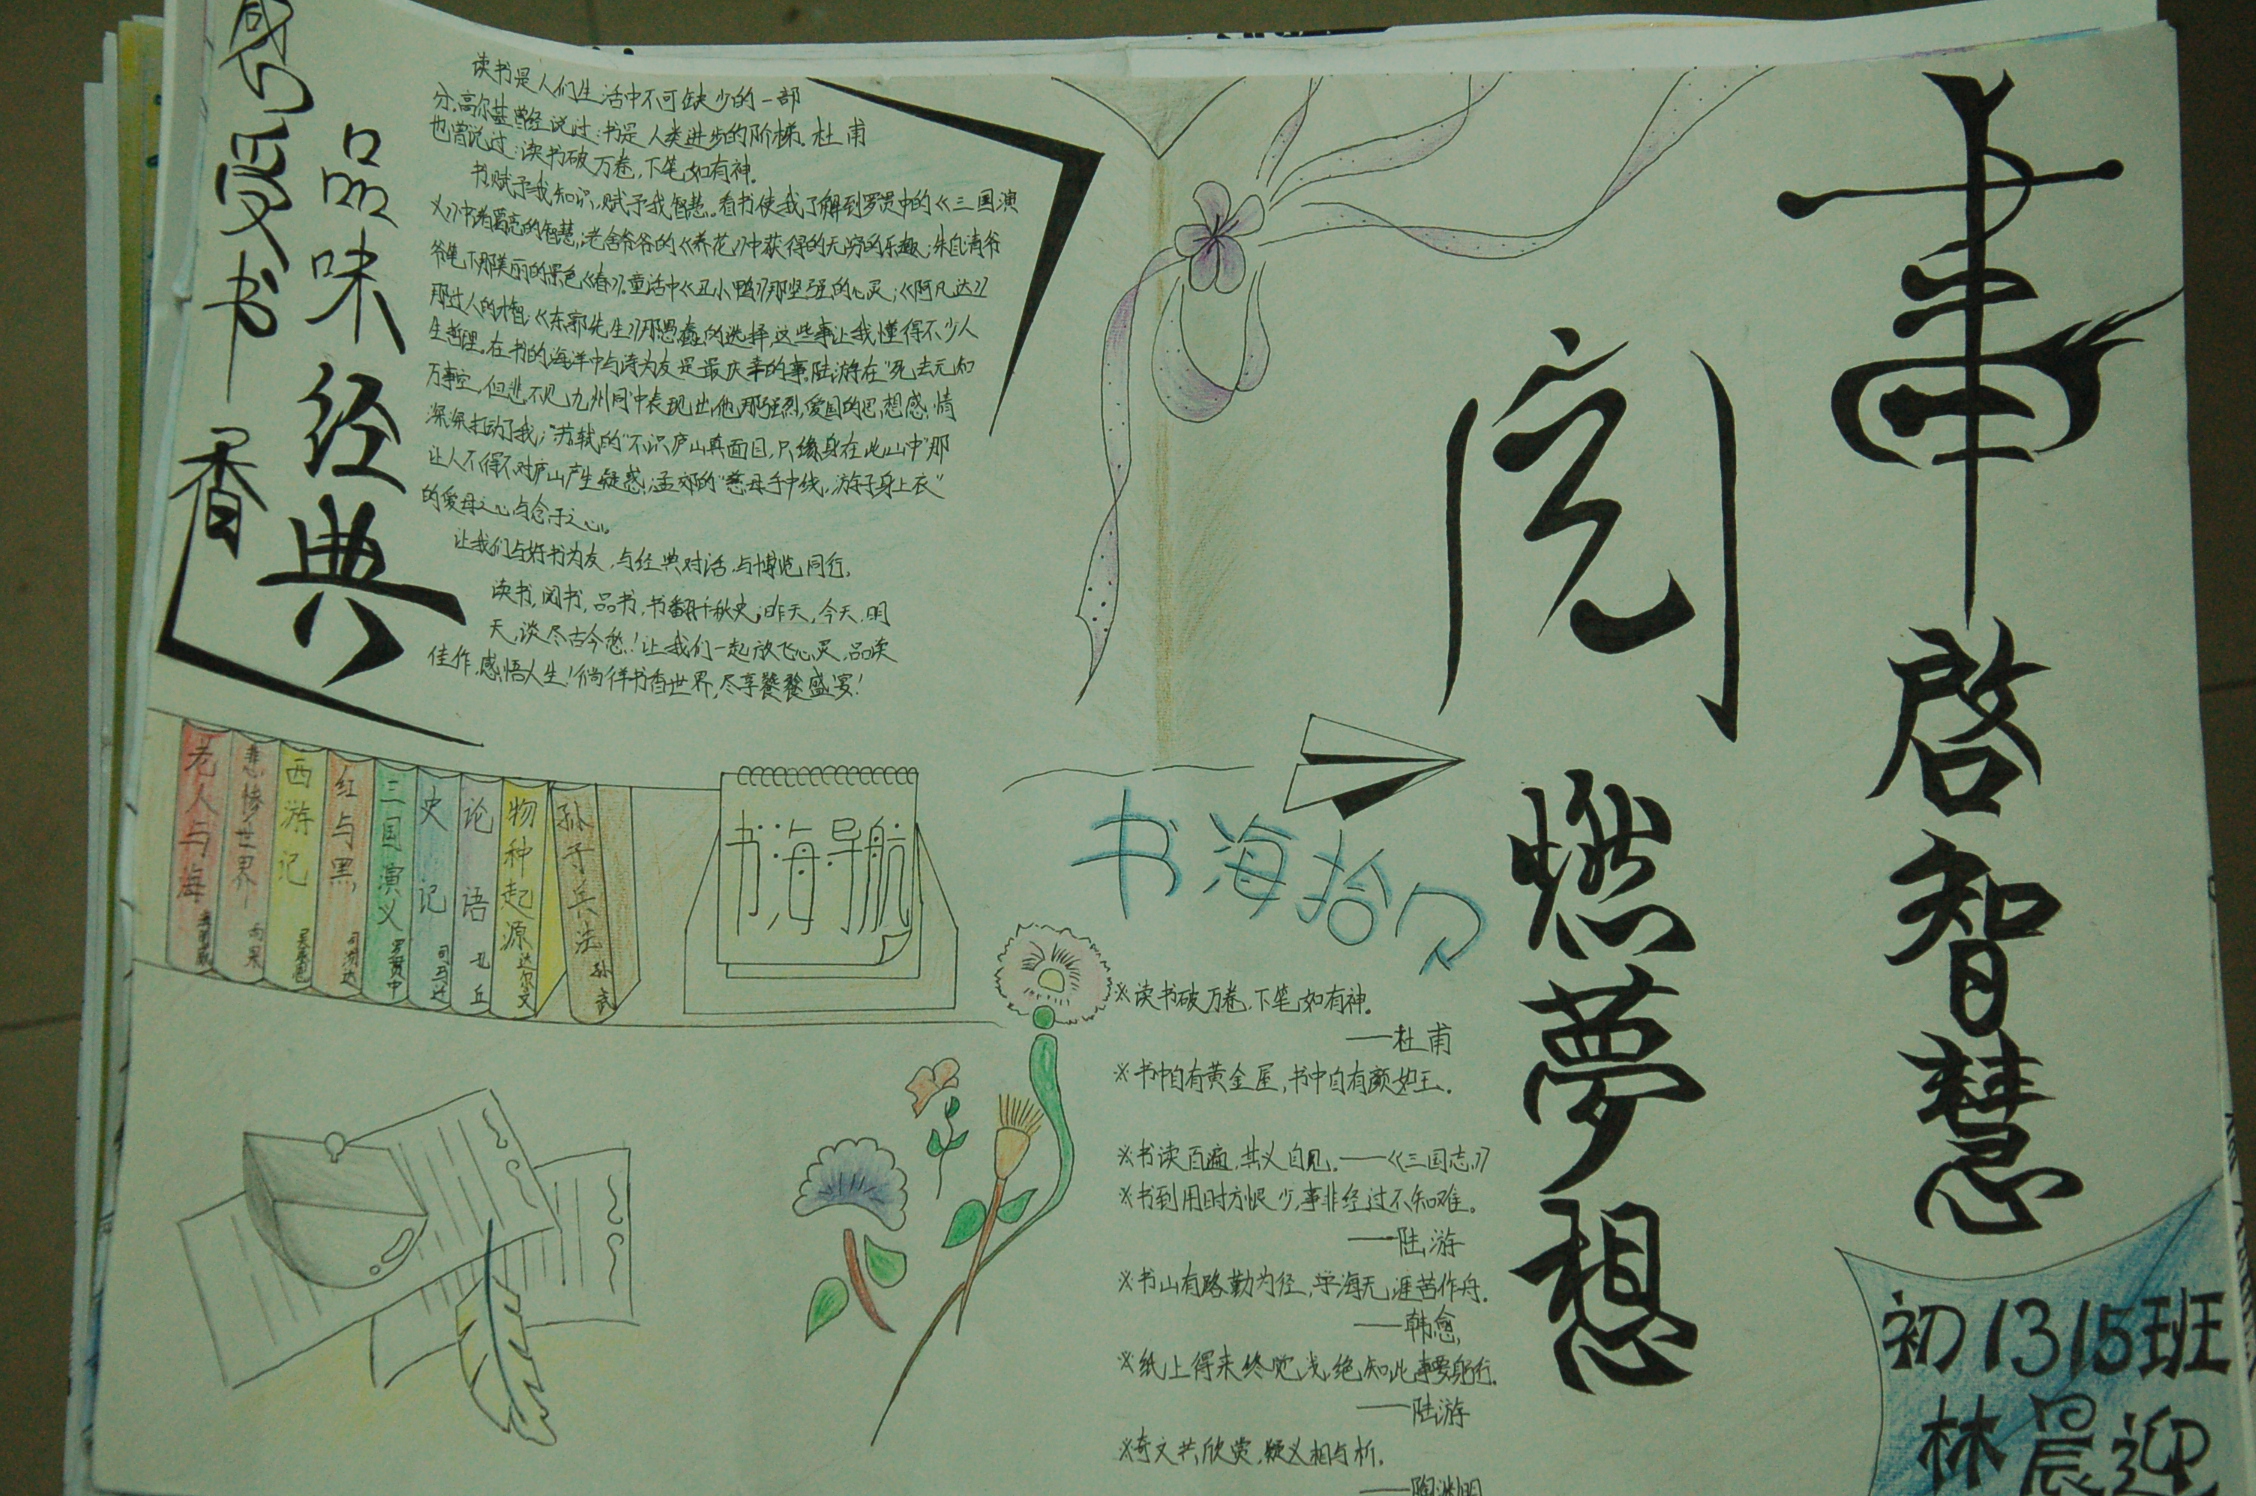 感受书香
品味经典
读书是人们生活中不可缺少的一部
分.高尔基曾经说过:书是人类进步的阶梯.杜甫
也曾说过:读书破万卷,下笔如有神.
书赋予我知识,赋予我智慧.看书使我了解到罗贯中的《三国演
义》中诸葛亮的智慧;老舍爷爷的《养花》中获得的无穷的乐趣;朱自清爷
爷笔下那美丽的景色《春》.童话中《丑小鸭》那坚强的心灵;《阿凡达》
那过人的才智《东郭先生》那愚蠢的选择,这些事让我懂得不少人
生哲理.在书的海洋中与诗为友是最庆幸的事.陆游在"死去元知
万事空,但悲不见九州同"中表现出他那强烈,爱国的思想感情
深深打动了我;"苏轼的"不识庐山真面目,只缘身在此山中"那
让人不得不对庐山产生疑惑;孟郊的"慈母手中线,游子身上衣"
的爱母之心与念子之心.
让我们与好书为友,与经典对话,与博览同行.
读书,阅书,品书,书翻千秋史;昨天,今天,明
天,谈尽古今愁!让我们一起放飞心灵,品读
佳作,感悟人生!徜徉书香世界,尽享饕餮盛宴!
老人与海 海明威
悲惨世界 雨果
西游记 吴承恩
红与黑 司汤达
三国演义 罗贯中
史记 司马迁
论语 孔丘
物种起源 达尔文
孙子兵法 孙武
书海导航
书海拾贝
※读书破万卷,下笔如有神.
——杜甫
※书中自有黄金屋,书中自有颜如玉.
※书读百遍,其义自见.——《三国志》
※书到用时方恨少,事非经过不知难.
——陆游
※书山有路勤为径,学海无涯苦作舟.
——韩愈
※纸上得来终觉浅,绝知此事要躬行.
——陆游
※奇文共欣赏,疑义相与析.
——陶渊明
書啓智慧
阅燃夢想
初1315班
林晨迎